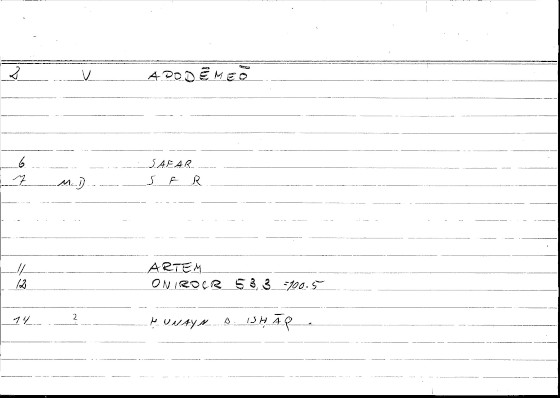 2 V APODĒMEŌ
6 SAFAR
7 M.D S F R
11 ARTEM
12 ONIROCR 53,3 =100.5
14 2 ḤUNAYN B ISḤĀQ .